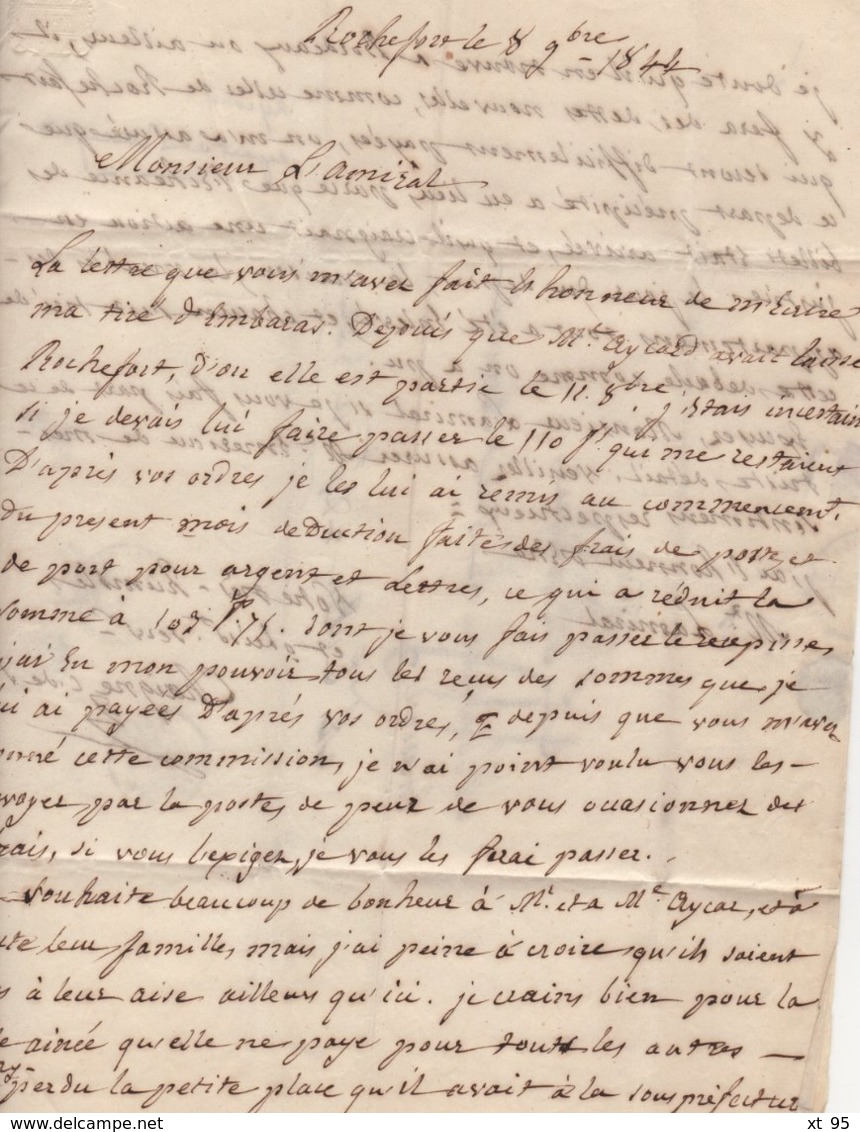 Rochefort le 8 9bre 1844
Monsieur L'amiral
La lettre que vous m'avez fait l'honneur de m'Ecrire
ma tiré d'Embaras. Depuis que Me Aycard avait laissé
Rochefort, d'ou elle est partie le 11. 8bre j'étais incertain
si je devais lui faire passer le 110 f. qui me restaient
D'aprés vos ordres je les lui ai remis au commencemt.
du present mois deduction faites des frais de poste, et
de port pour argent et Lettres, ce qui a réduit la
somme à 103 f. 75. dont je vous fais passer le recepisse,
j'ai En mon pouvoir tous les reçus des sommes que je
ui ai payées D'aprés vos ordres, & depuis que vous m'avez
onné cette commission, je n'ai point voulu vous les -
voyer par la poste, de peur de vous ocasionner des
rais, si vous l'exigez, je vous les ferai passer.
souhaite beaucoup de bonheur à Mr. et a Me Aycar, et à
ute leur famille, mais j'ai peine à croire qu'ils soient
s à leur aise ailleurs qu'ici. je crains bien pour la
e ainée qu'elle ne paye pour tout les autres -
perdu la petite place qu'il avait à la souspréfectur
xt 95